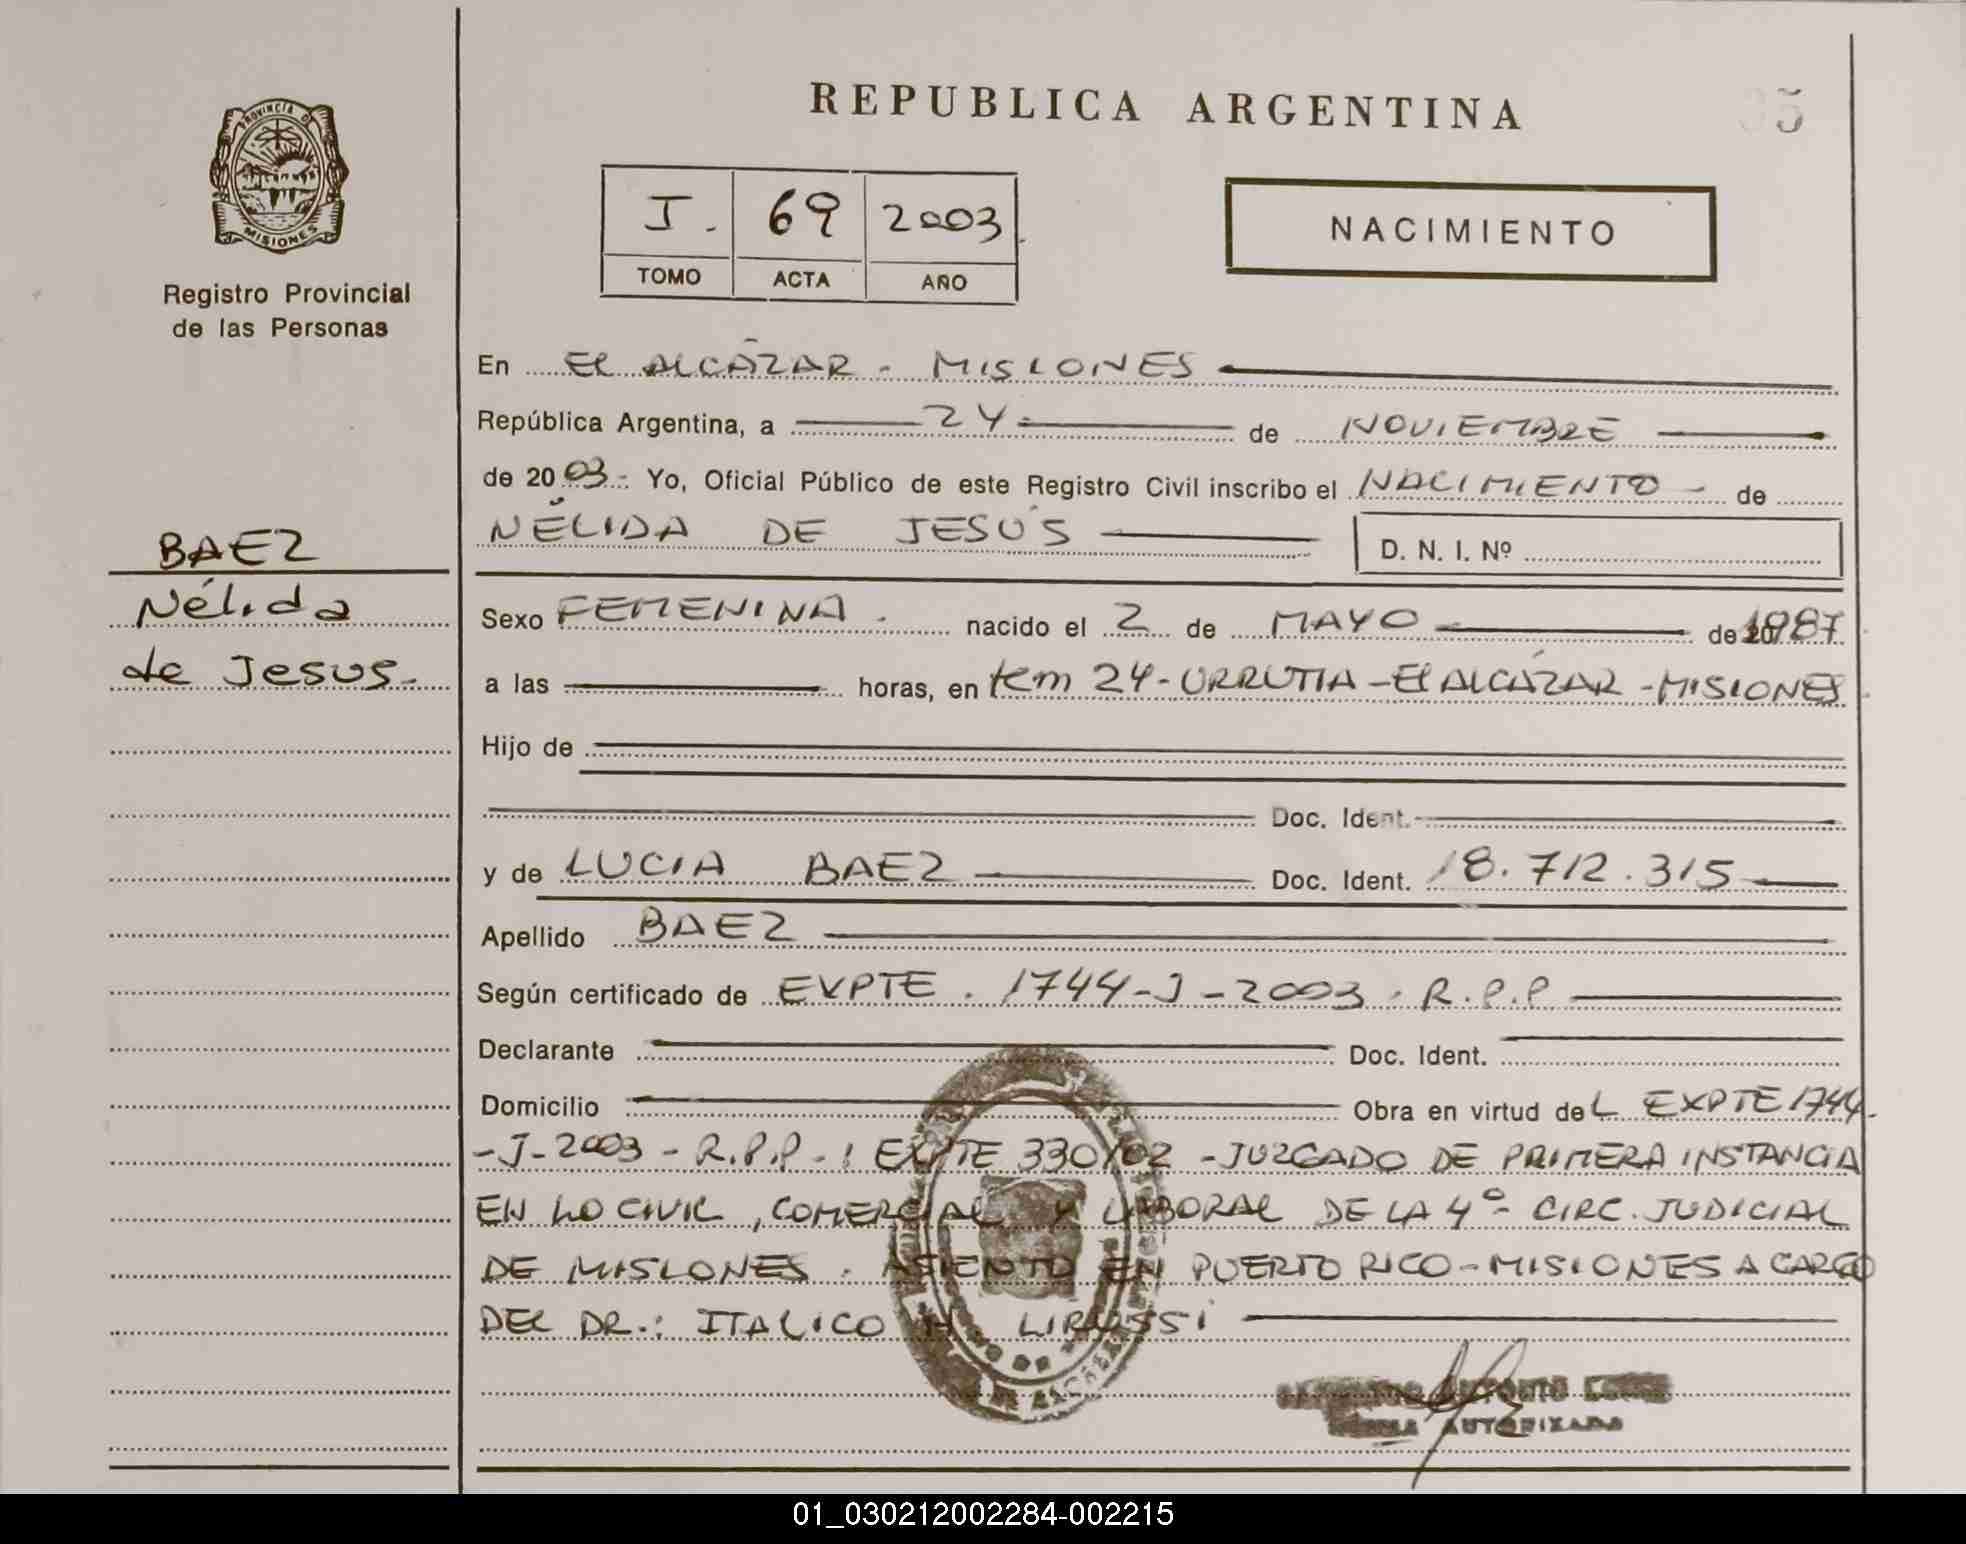 PROVINCIA D
MISIONES
Registro Provincial
de las Personas
BAEZ
Nélida
de Jesus.
REPUBLICA ARGENTINA
35
I. 69 2003
TOMO ACTA AÑO
NACIMIENTO
En EL ALCÁZAR - MISIONES
República Argentina, a 24 de NOVIEMBRE
de 2003 - Yo, Oficial Público de este Registro Civil inscribo el NACIMIENTO - de
NÉLIDA DE JESÚS D. N. I. Nº
Sexo FEMENINA. nacido el 2 de MAYO de 1987
a las horas, en km 24 - URRUTIA - El ALCÁZAR - MISIONES
Hijo de
Doc. Ident.
y de LUCIA BAEZ Doc. Ident. 18.712.315
Apellido BAEZ
Según certificado de EXPTE. 1744-J-2003. R.P.P
Declarante Doc. Ident.
Domicilio Obra en virtud deL EXPTE 1744
-J-2003 - R.P.P - ; EXPTE 330/02 - JUZGADO DE PRIMERA INSTANCIA
EN LO CIVIL, COMERCIAL Y LABORAL DE LA 4º CIRC. JUDICIAL
DE MISIONES. ASIENTO EN PUERTO RICO - MISIONES A CARGO
DEL DR.: ITALICO H. LIRUSSI
ANTONIO
AUTORIZADA
01_030212002284-002215